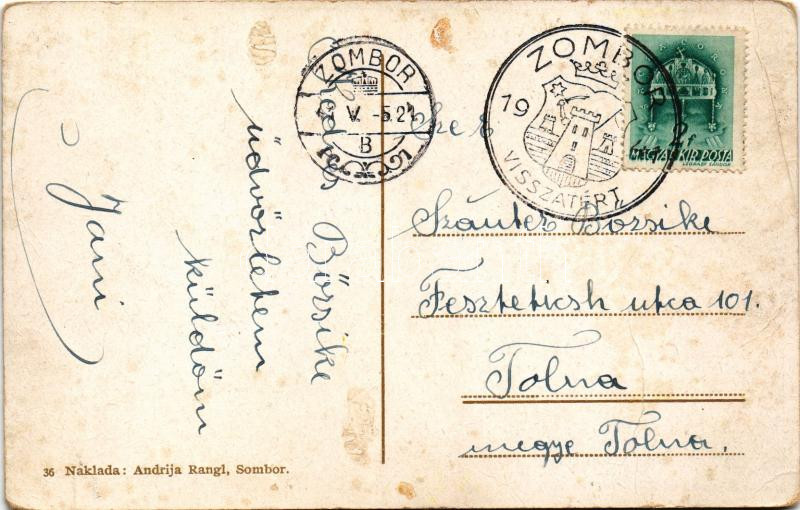 Bözsike
üdvözletem
küldöm
Jani
36 Naklada: Andrija Rangl, Sombor.
ZOMBOR
V. -5.21
B
ZOMBOR
19
VISSZATÉRT
2f
MAGYAR KIR. POSTA
Szántó Bözsike
Fesztetichs utca 101.
Tolna
megye Tolna.